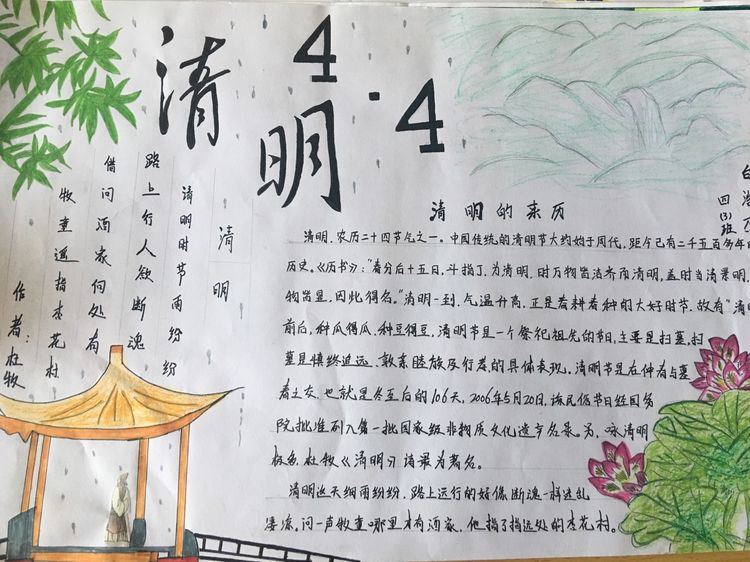 清明
4·4
清明
清明时节雨纷纷
路上行人欲断魂
借问酒家何处有
牧童遥指杏花村
作者:杜牧
清明的来历
四(3)班
清明,农历二十四节气之一。中国传统的清明节大约始于周代,距今已有二千五百多年的
历史。《历书》:"春分后十五日,斗指丁,为清明,时万物皆洁齐而清明,盖时当清景明,
物皆显,因此得名。"清明一到,气温升高,正是春耕春种的大好时节,故有"清明
前后,种瓜得瓜,种豆得豆,清明节是一个祭祀祖先的节日,主要是扫墓,扫
墓是慎终追远、敦亲睦族及行孝的具体表现。清明节是在仲春与暮
春之交,也就是冬至后的106天,2006年5月20日,该民俗节日经国务
院批准列入第一批国家级非物质文化遗产名录。另,咏清明
杜牧《清明》诗最为著名。
清明这天细雨纷纷,路上远行的好像断魂一样迷乱
凄凉。问一声牧童哪里才有酒家,他指了指远处的杏花村。